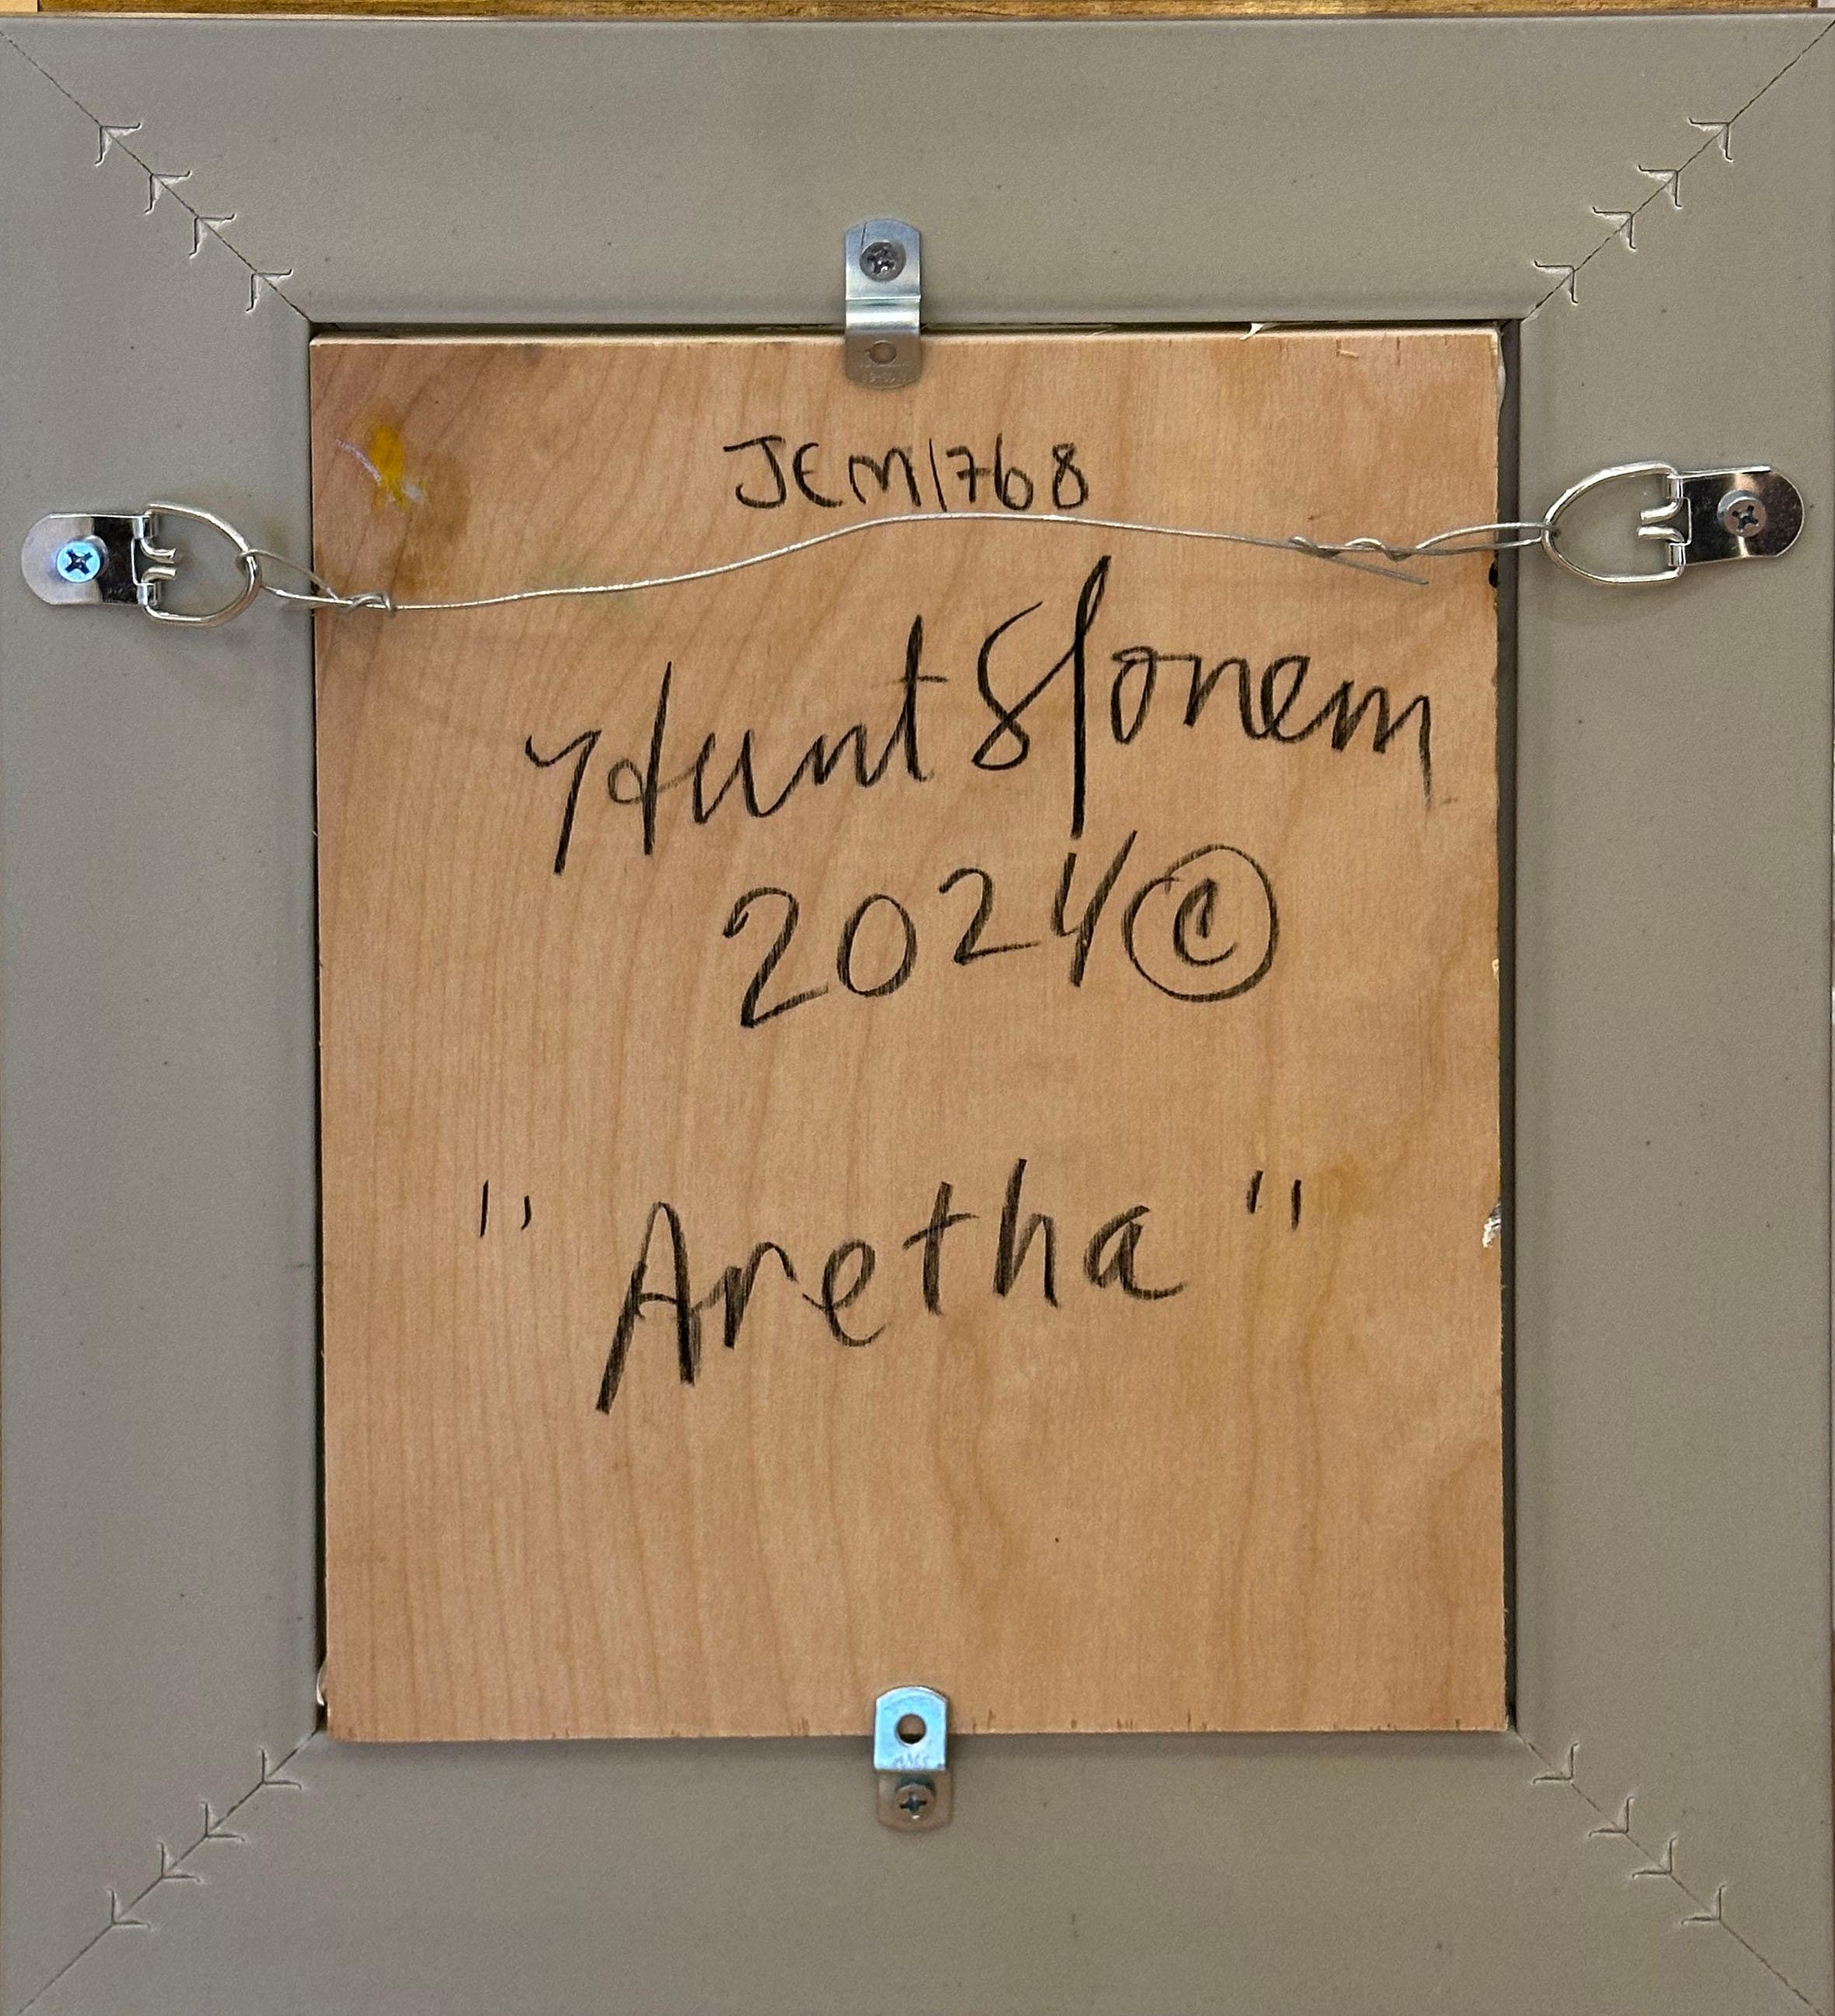 JEM1768
Hunt Slonem
2024 ©
"Aretha"